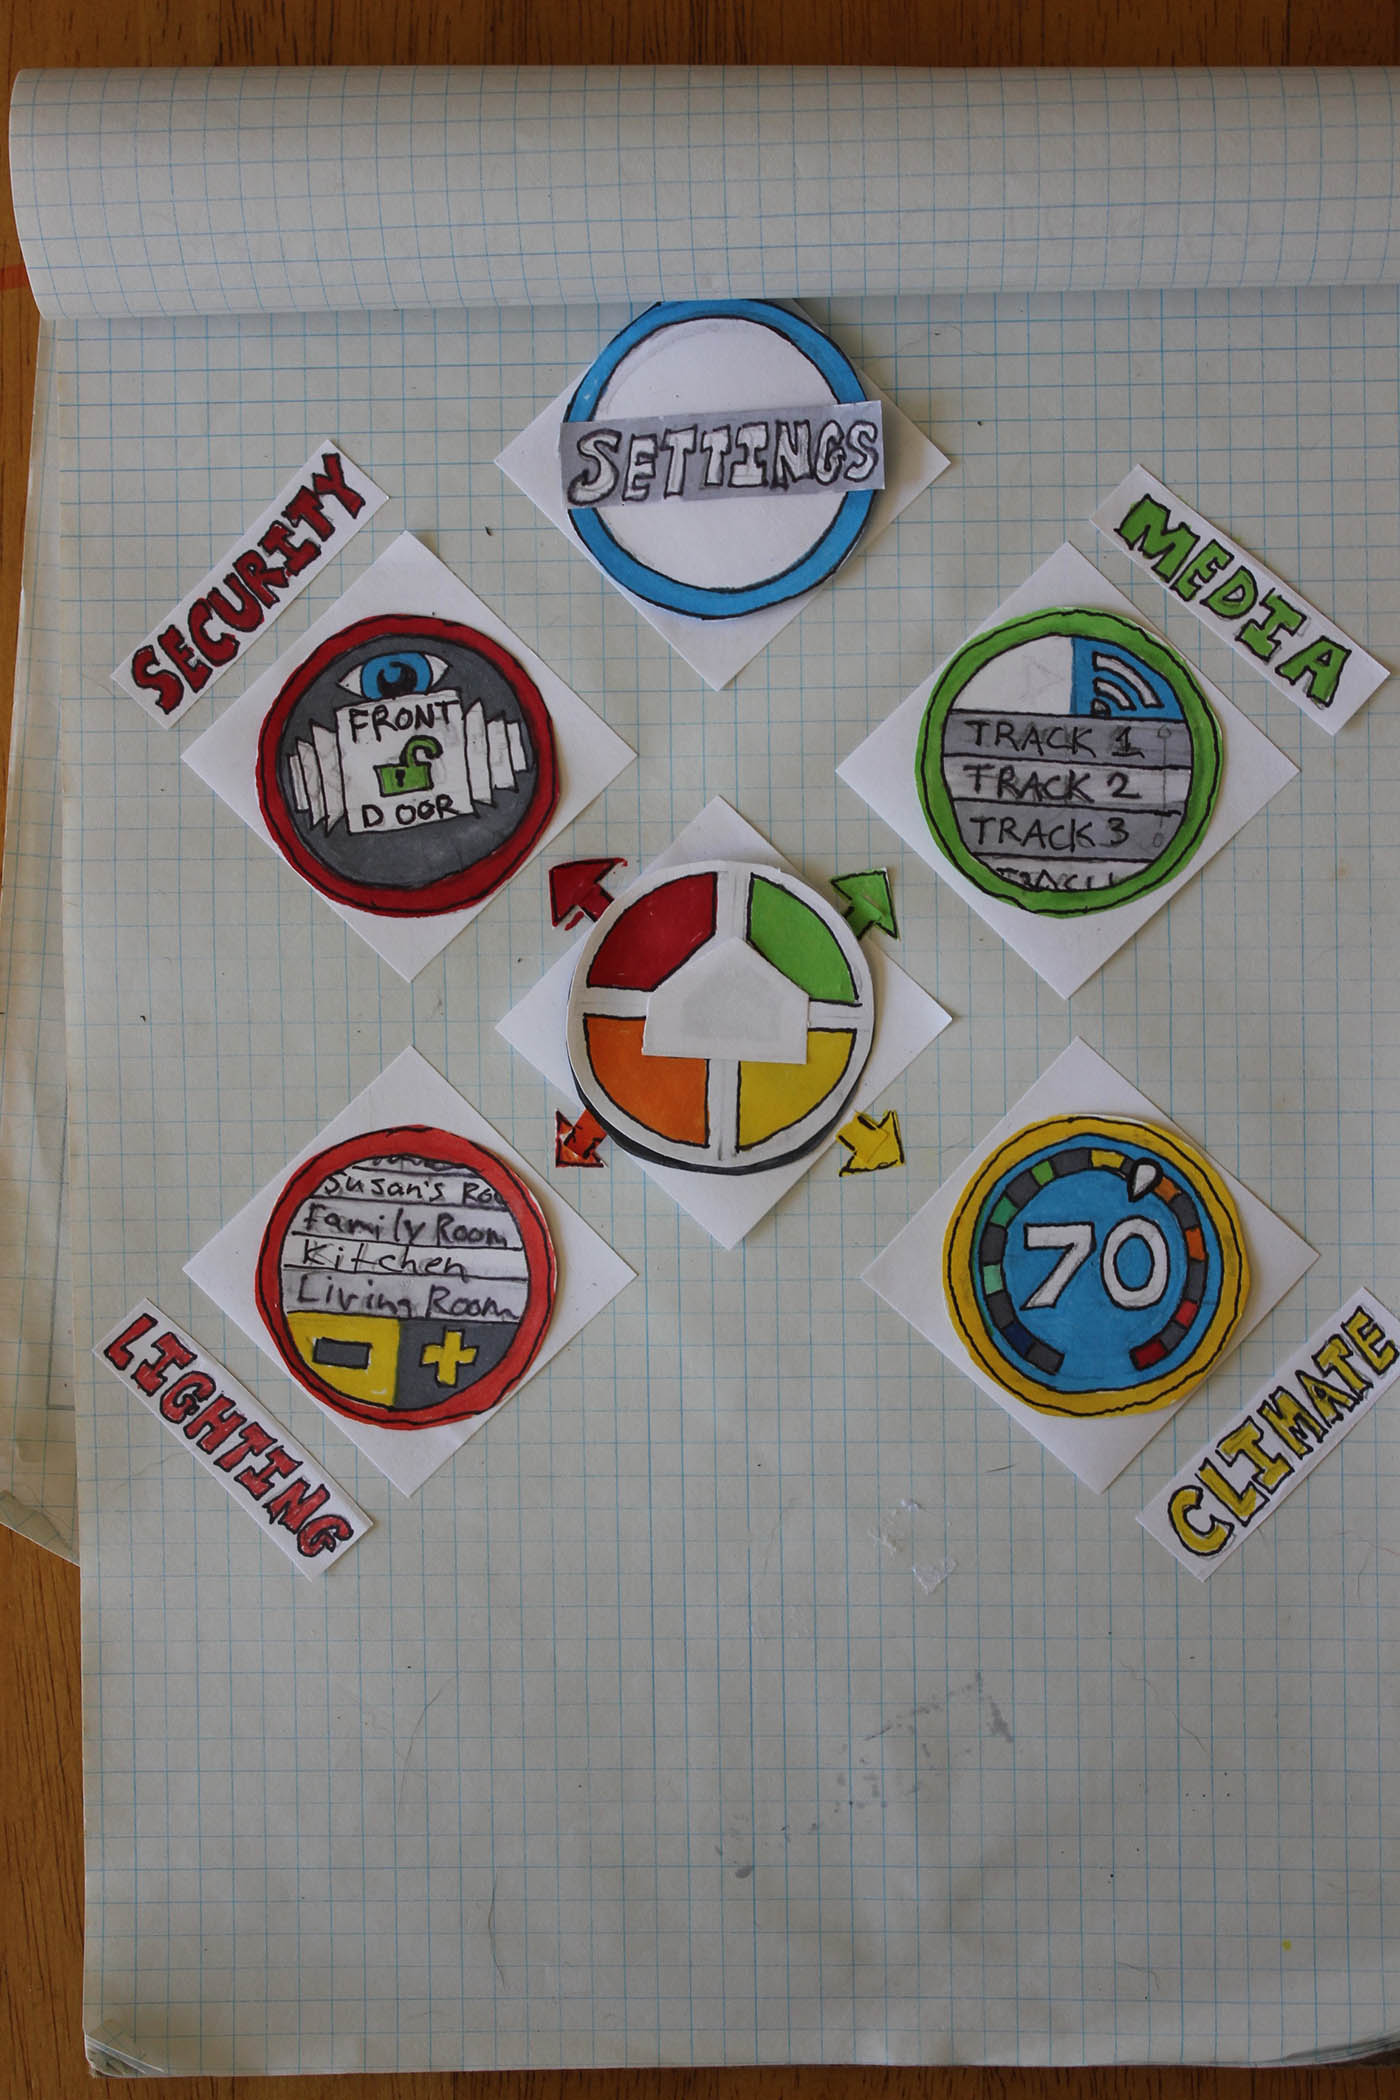 SETTINGS
SECURITY
FRONT
DOOR
MEDIA
TRACK 1
TRACK 2
TRACK 3
Susan's Roo
Family Room
Kitchen
Living Room
LIGHTING
70
CLIMATE